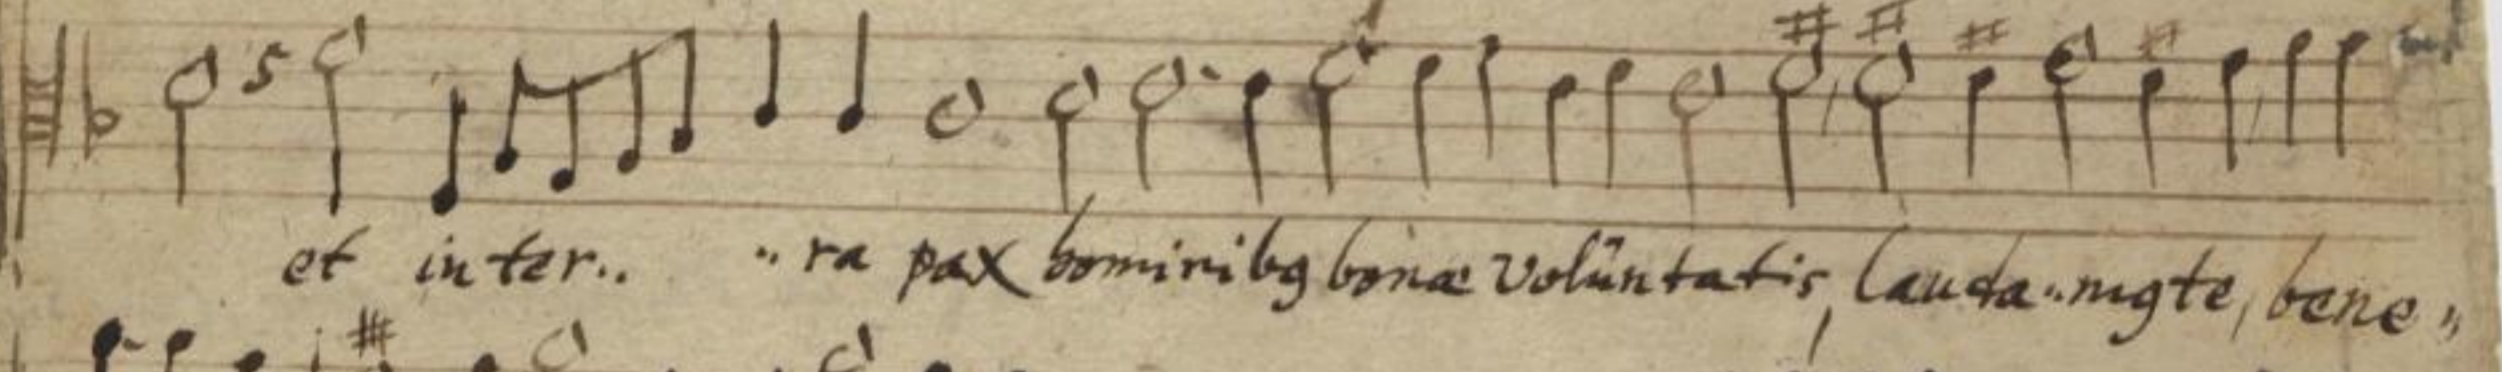 et in ter.. „ ra pax hominibꝫ bonæ volŭntatis, lauda„mꝫ te, bene„